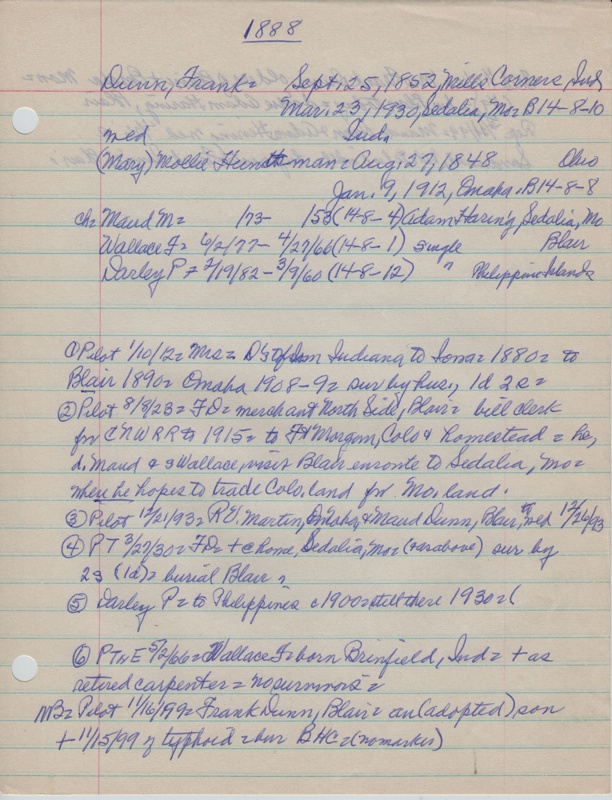 1888
Dunn, Frank = Sept. 25, 1852, Mills Corners, Ind
Mar. 23, 1930, Sedalia, Mo = B 14-8-10
med Ind.
(Mary) Mollie Huntsman = Aug. 27, 1848 Ohio
Jan. 9, 1912, Omaha. B14-8-8
ch = Maud M = 173- 153 (14-8-4) Adam Haring, Sedalia, Mo
Wallace F = 6/2/77 - 4/27/66 (14-8-1) single Blair
Darley P = 2/19/82 - 3/9/60 (14-8-12) " Philippine Islands
① Pilot 1/10/12 = Mrs = D Indiana to Iowa = 1880 = to
Blair 1890 = Omaha 1908-9 = sur by hus., 1d 2s =
② Pilot 8/8/23 = FD = merchant North Side, Blair = bill clerk
for CNWRR to 1915 = to Ft Morgan, Colo & homestead = he,
d. Maud & s Wallace, visit Blair enroute to Sedalia, Mo =
where he hopes to trade Colo. land for Mo. land.
③ Pilot 12/21/93 = R E. Martin, Omaha, & Maud Dunn, Blair, med 12/20/93
④ PT 3/27/30 = FD = + c home, Sedalia, Mo = (as above) sur by
2s (1d) = burial Blair =
⑤ Darley P = to Philippines c1900 = still there 1930 = (
⑥ PTnE 5/2/66 = Wallace F = born Brinfield, Ind = + as
retired carpenter = no survivors =
NB = Pilot 11/16/99 = Frank Dunn, Blair = an (adopted) son
+ 11/15/99 of typhoid = bur BHC = (no marker)